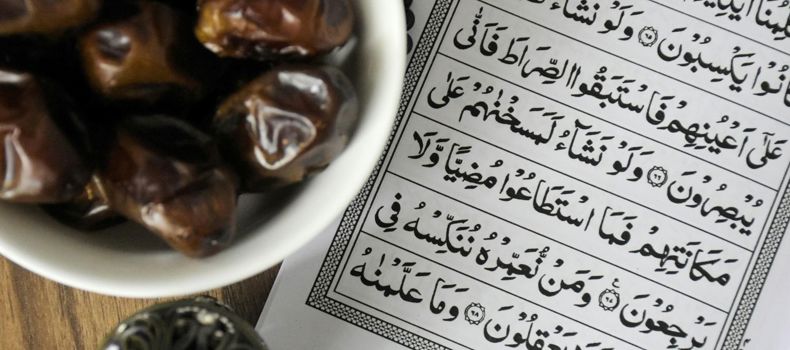 يَكْسِبُوْنَ ۝٦٥ وَلَوْ نَشَآءُ
عَلٰٓى اَعْيُنِهِمْ فَاسْتَبَقُوا الصِّرَاطَ فَاَنّٰى
يُبْصِرُوْنَ ۝٦٦ وَلَوْ نَشَآءُ لَمَسَخْنٰهُمْ عَلٰى
مَكَانَتِهِمْ فَمَا اسْتَطَاعُوْا مُضِيًّا وَّلَا
يَرْجِعُوْنَ ۝٦٧ وَمَنْ نُّعَمِّرْهُ نُنَكِّسْهُ فِى
يَعْقِلُوْنَ ۝٦٨ وَمَا عَلَّمْنٰهُ